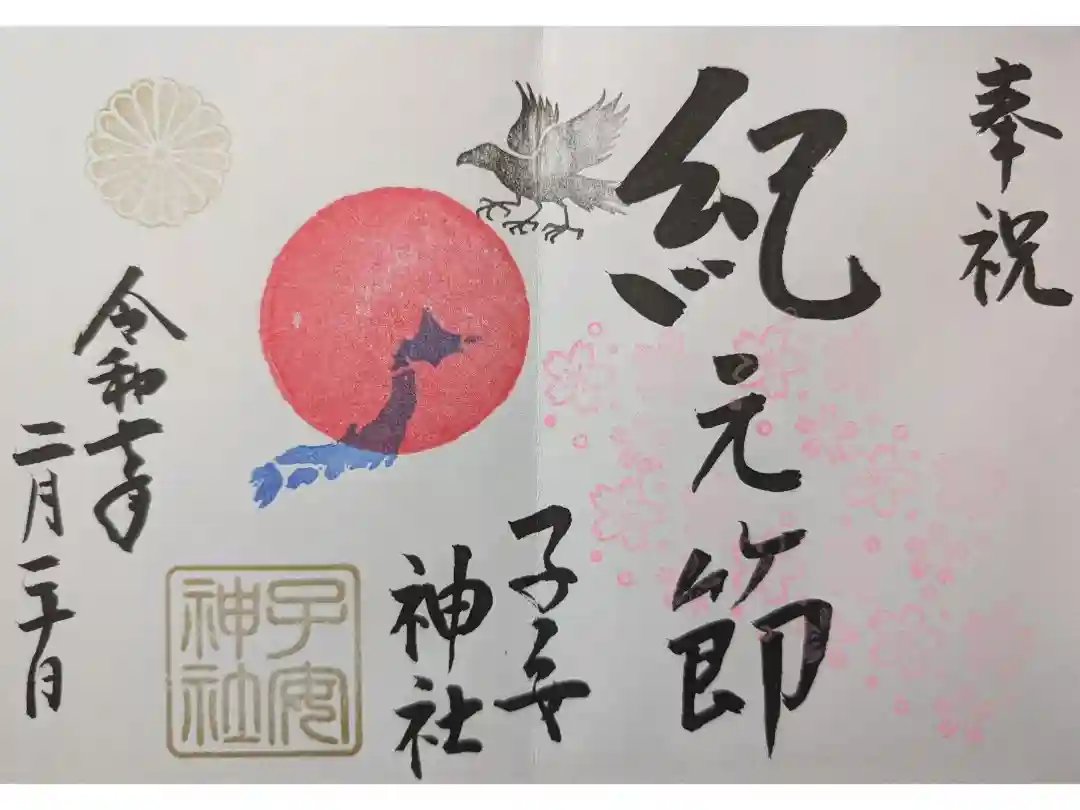 奉祝
紀元節
子安
神社
子安
神社
令和七年
二月二十日